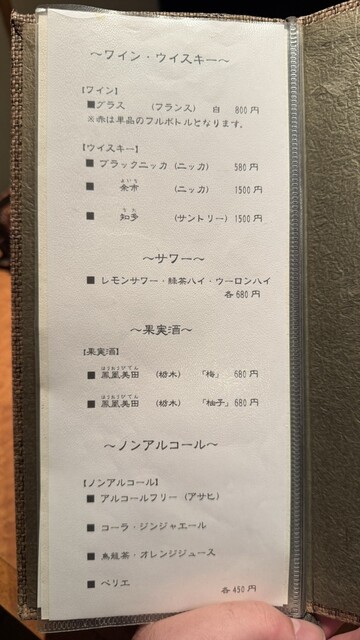 ～ワイン・ウイスキー～
【ワイン】
■グラス (フランス) 白 800円
※赤は単品のフルボトルとなります。
【ウイスキー】
■ ブラックニッカ (ニッカ) 580円
よいち
■ 余市 (ニッカ) 1500円
ちた
■ 知多 (サントリー) 1500円
～サワー～
■ レモンサワー・緑茶ハイ・ウーロンハイ
各680円
～果実酒～
【果実酒】
ほうおうびでん
■ 鳳凰美田 (栃木) 「梅」 680円
ほうおうびでん
■ 鳳凰美田 (栃木) 「柚子」 680円
～ノンアルコール～
【ノンアルコール】
■ アルコールフリー (アサヒ)
■ コーラ・ジンジャエール
■ 烏龍茶・オレンジジュース
■ ペリエ
各450円